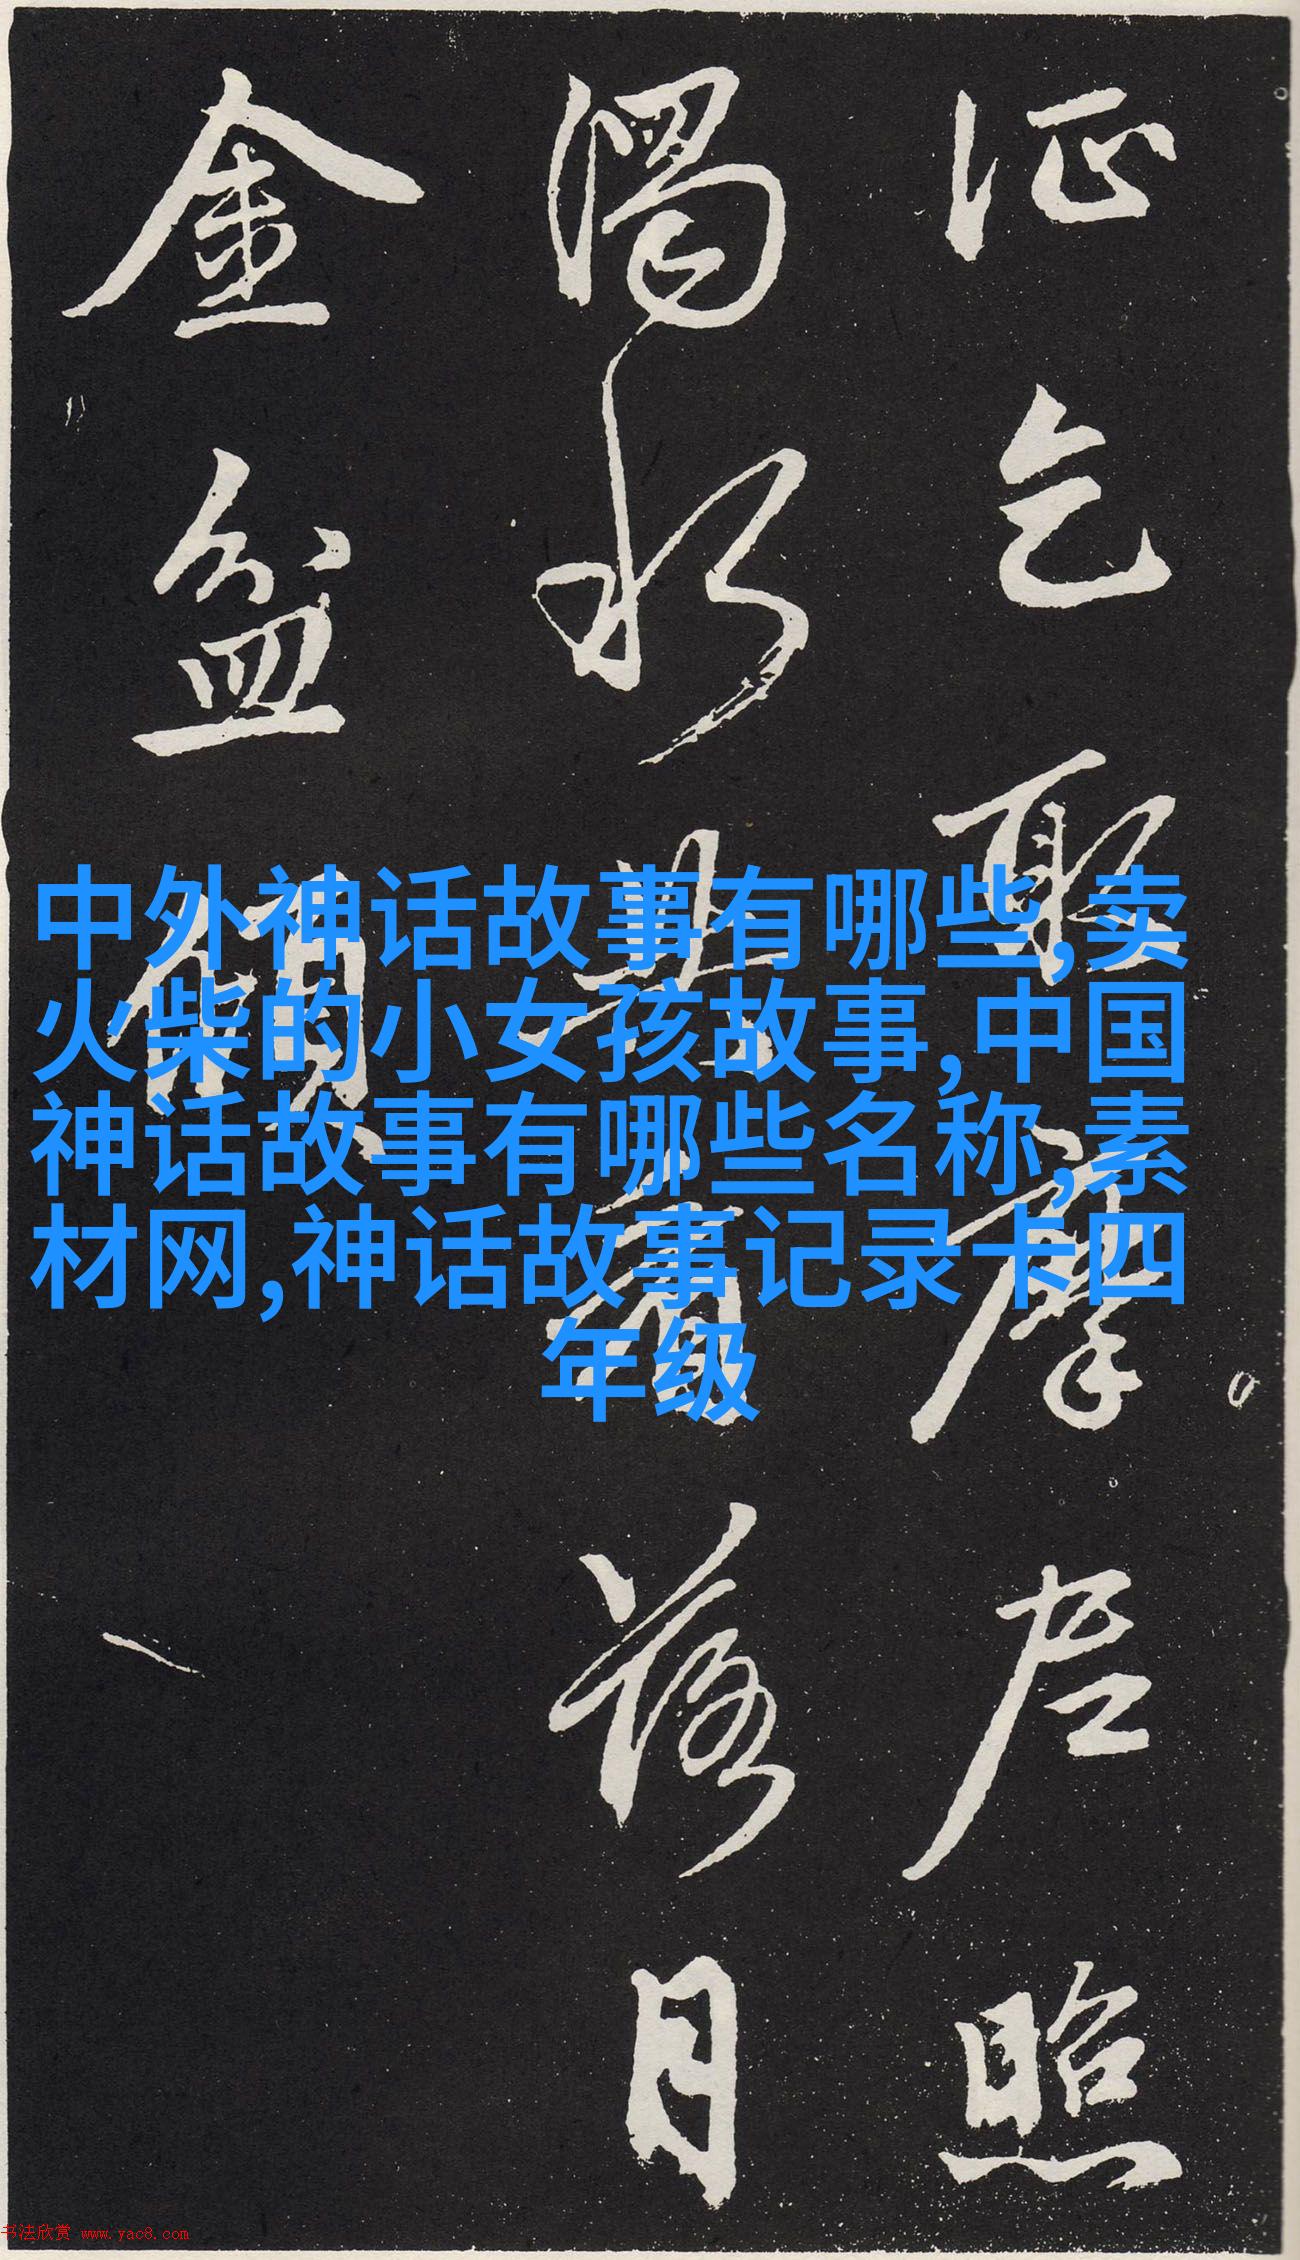 泥乞取摩尼照
濁水共看落月
金盆傾
中外神话故事有哪些,卖
火柴的小女孩故事,中国
神话故事有哪些名称,素
材网,神话故事记录卡四
年级
书法欣赏 www.yac8.com